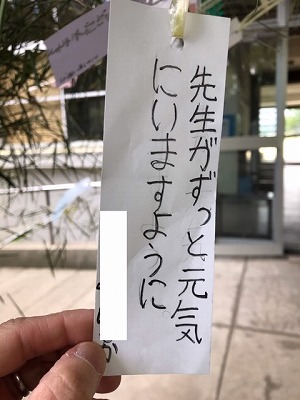 先生がずっと元気
にいますように